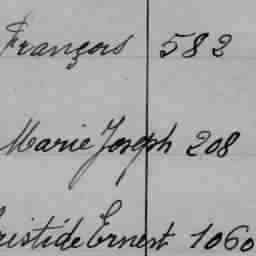 François 582
Marie Joseph 208
ristide Ernest 1060